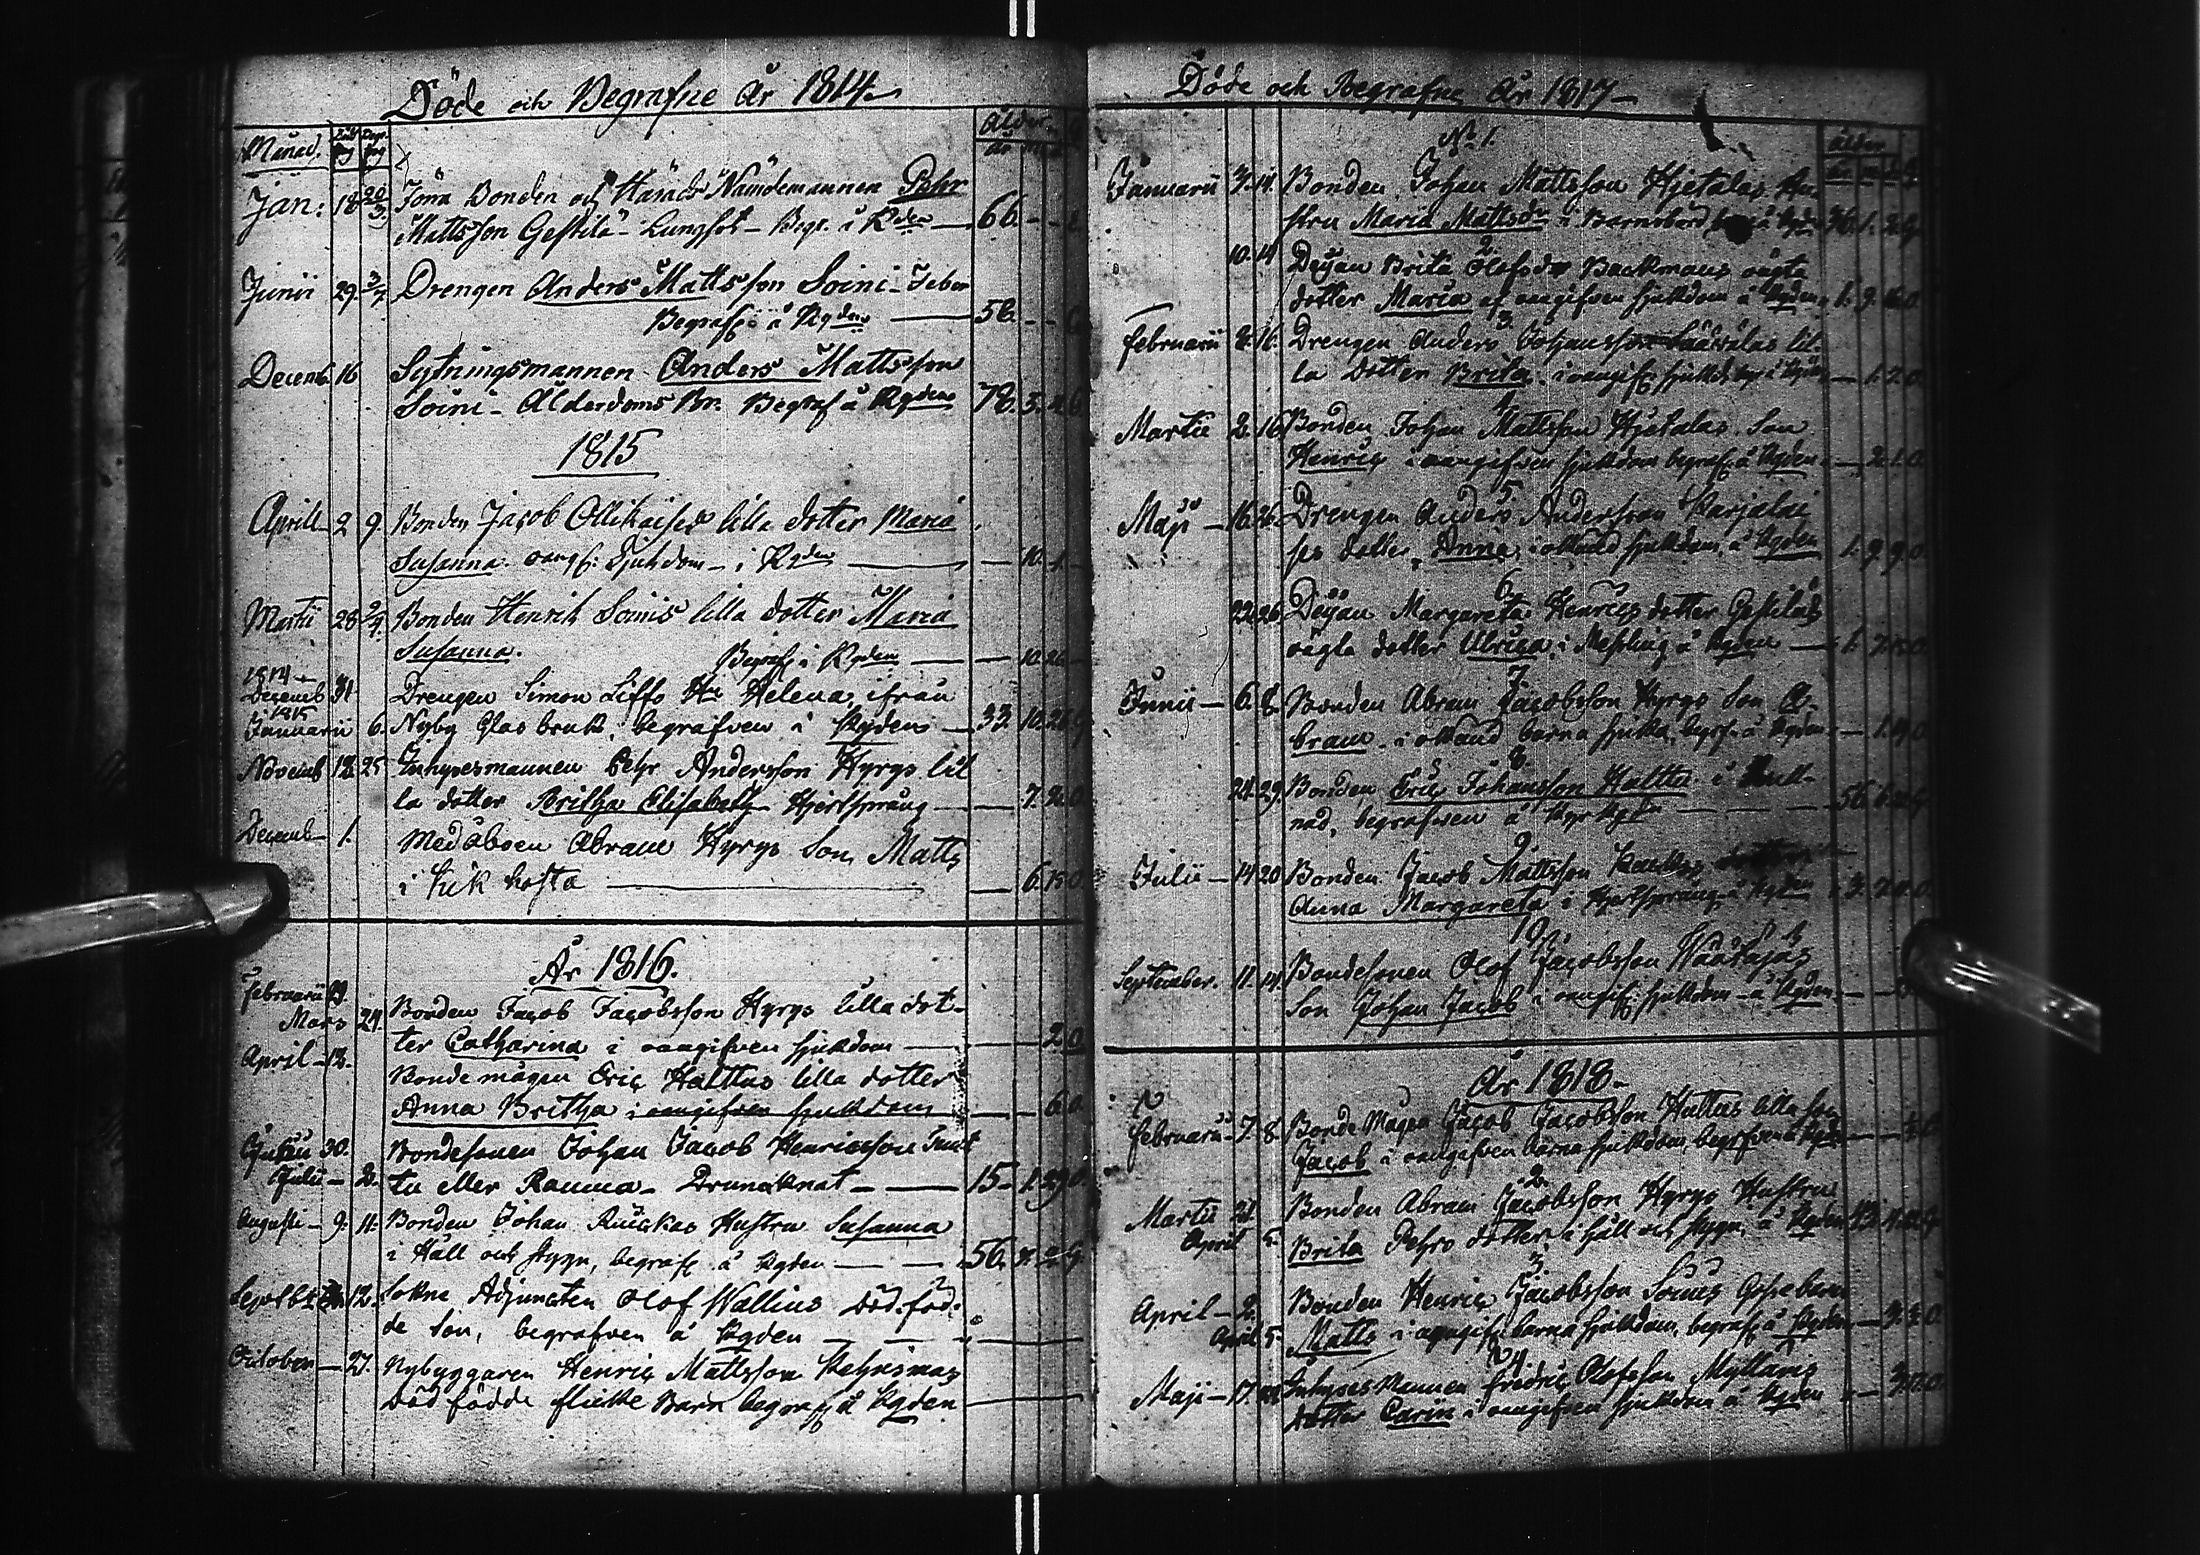 Döde och Begrafne År 1814
Månad. Död dag Begr. dag Ålder
År
Jan: 18 20/3 Förra Bonden och Härads Nämdemannen Pehr
Mattsson Gestilä - Lungsot - Begr. i Kgden 66
Junii 29 3/7 Drengen Anders Mattsson Soini - Feber
Begrafs å Kgden 58
Decemb. 16 Sytningsmannen Anders Mattsson
Soini - Ålderdoms Br. Begraf å Kgden 78. 5.
1815
Aprill 2 9. Bonden Jacob Ollikaises lilla dotter Maria
Susanna. oangf: Sjukdom - i Kgden 10. 1.
Martii 28 2/4 Bonden Henrik Soinis lilla dotter Maria
Susanna. Begrafs i Kgden 10. 26
1814
Decemb 31 Drengen Simon Liffs Hu Helena, ifrån
1815
Januarii 6. Nyby Glasbruk, begrafven i Kgden 33. 10. 25 G
Novemb 18 25 Inhysesmannen Pehr Andersson Kyrys lil
la dotter Britha Elisabeth Hjertsprång 7. 0
Decemb 1. Medåboen Abram Kyrys Son Matts
i kik hosta 6. 15 0
År 1816.
Februarii 29.
Mars 24. Bonden Jacob Jacobsson Kyrys lilla dot-
ter Catharina i oangifven sjukdom 2 0
April 13. Bondemågen Eric Halttus lilla dotter
Anna Britha i oangifven sjukdom 6. 0
Junii 30. Bondesonen Johan Jacob Henricsson
Julii 2. tu eller Rauma - Drunknat 15 1. 29 0
Augusti 9. 11. Bonden Johan Ruuskas Hustru Susanna
i Håll och styng, begrafs å Kgden 56. G
12. Sokne Adjuncten Olof Wallius död föd-
de Son, begrafven å Kgden
October 27. Nybyggaren Henric Mattsson
död födde flicke Barn begrafs å Kgden
Döde och Begrafne År 1817
No 1. ålder
Januarii 14. Bonden Johan Mattsson Hjetalas Hu
stru Maria Mattsdr i Barnsbörd å Kgden 36. 1. G
2.
10. 19 Pigan Brita Olofsdr Backmans oägta
dotter Maria af oangifven sjukdom å Kgden 1. 9. 0
3.
Februarii 8. 16. Drengen Anders Johansson lil-
la dotter Brita i oangifs sjukd. begr. i Kgden 1. 7. 0
4.
Martii 2. 16 Bonden Johan Mattsson Hjetalas Son
Henric i oangifven sjukdom begraf. å Kgden 2. 1. 0.
5.
Maji 16. 26. Drengen Anders Andersson Karjalai
ses dotter Anna i okänd sjukdom, å Kgden 1. 9 9 0
6.
22. 26 Pigan Margareta Henrics dotter Gestiläs
oägta dotter Ulrica i Messling å Kgden 1. 7. 15 0
7.
Junii 6. 8. Bonden Abram Jacobsson Kyrys Son A-
bram i okänd barna sjukd. begr. å Kgden 1. 19 0
8.
24. 29. Bonden Eric Johansson Halttu i
nad, begrafven å Kgden 56 6. G
9.
Julii 14 20 Bonden Jacob Mattsson dotter
Anna Margareta i Hjertsprång å Kgden 3. 7. 0
10
September. 11. 14. Bondesonen Olof Jacobsson Wäärajäs
Son Johan Jacob i oangif: sjukdom å Kgden
År 1818.
1
Februarii 7 8 Bonde Mågen Jacob Jacobsson Haltus lilla son
Jacob i oangifven barna sjukdom, begrafven å Kgden
2.
Martii 21 Bonden Abram Jacobsson Kyrys Hustru
April 5. Brita Pehrs dotter i håll och styng, å Kgden 43. G
3.
April 2. Bonden Henric Jacobsson Soines
April 5. Matts i oangif. barna sjukdom, begraf. å Kgden 0
4
Maji 17. Inhyses Mannen Fredric Olofsson Myllaris
dotter Carin i oangifven sjukdom å Kgden 0